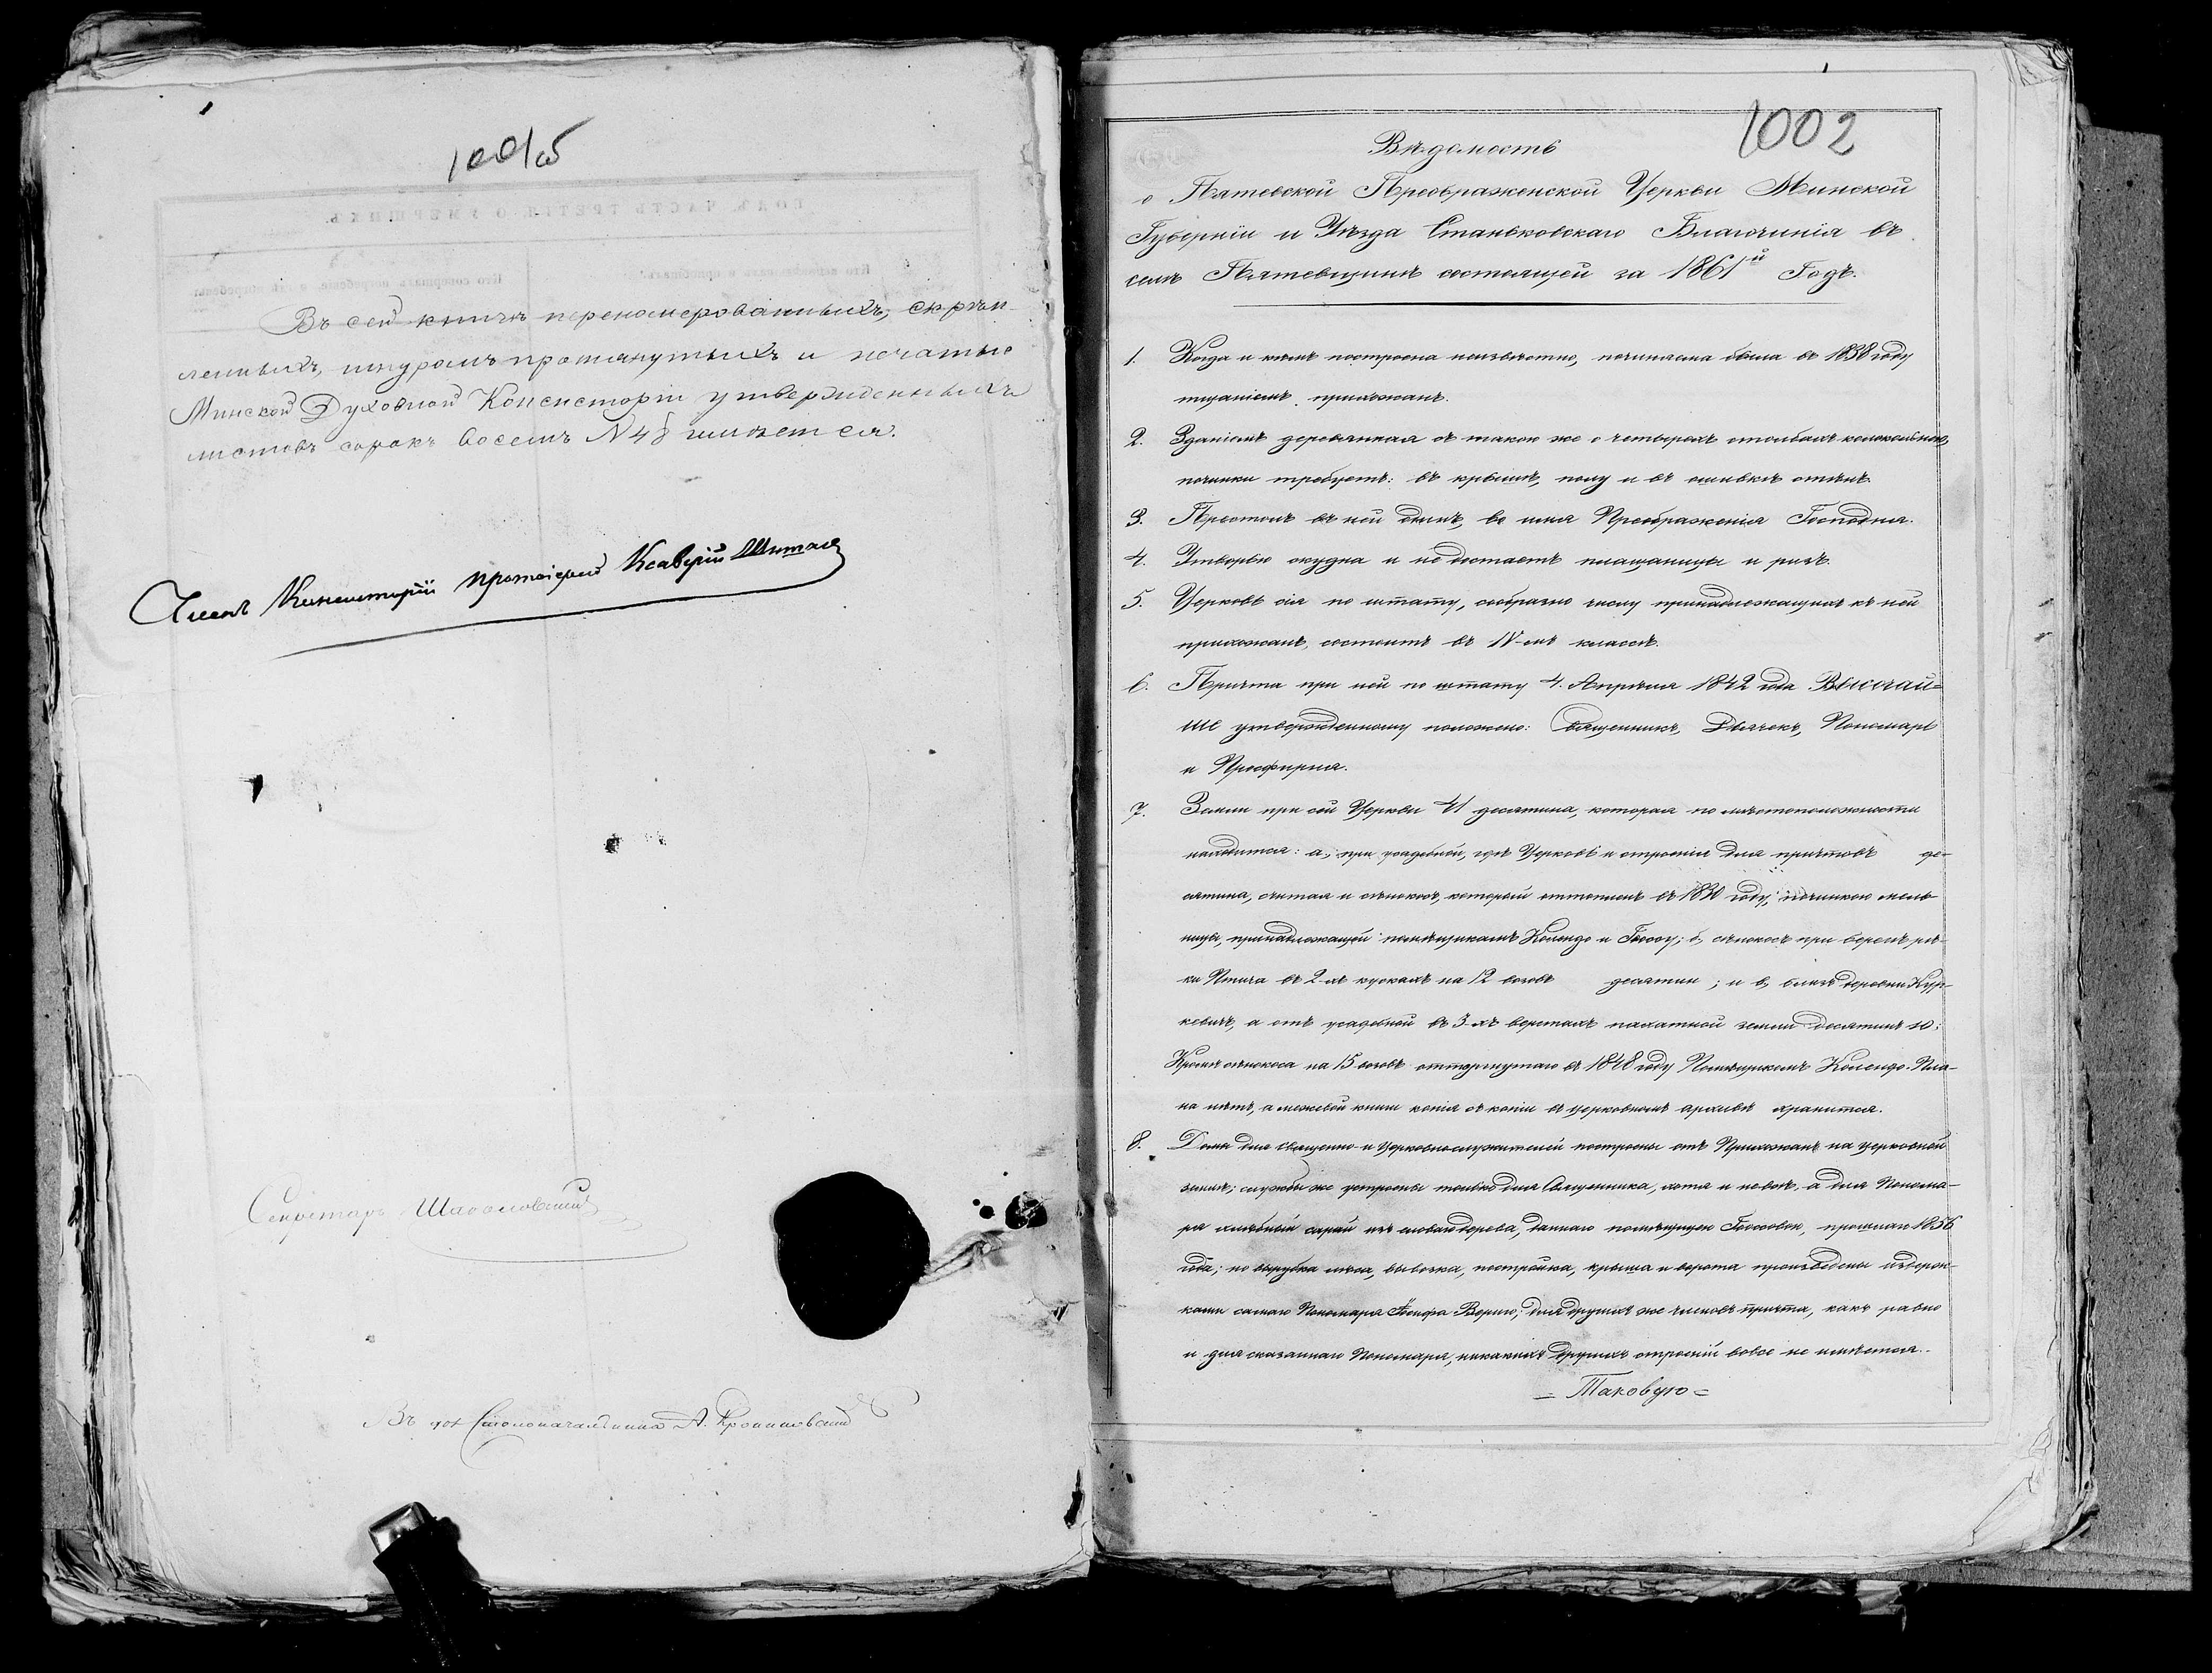 1001об
Въ сей книгѣ переномерованныхъ, скрѣп-
ленныхъ, шнуромъ протянутыхъ и печатью
Минской Духовной Консисторіи утвержденныхъ
листовъ сорокъ восемь N 48 имѣется.
Членъ Консисторіи протоіерей Ксаверій
Секретарь
Въ Столоначальника А.
1002
Вѣдомость
о Пятевской Преображенской Церкви Минской
Губерніи и Уѣзда Станьковскаго Благочинія въ
селѣ Пятевщинѣ состоящей за 1861й Годъ.
1. Когда и кѣмъ построена неизвѣстно, починяема была въ 1838 году
тщаніемъ прихожанъ.
2. Зданіемъ деревянная съ такою же о четырехъ столбахъ колокольнею,
починки требуетъ: въ крышѣ, полу и въ ошивкѣ стѣнъ.
3. Престолъ въ ней одинъ, во имя Преображенія Господня.
4. Утварью скудна и не достаетъ плащаницы и ризъ.
5. Церковь сія по штату, сообразно числу принадлежащихъ къ ней
прихожанъ, состоитъ въ IV-мъ классѣ.
6. Причта при ней по штату 4. Апрѣля 1842 года Высочай=
ше утвержденному положено: Священникъ, Дьячекъ, Пономарь
и Просфирня.
7. Земли при сей Церкви 41 десятина, которая по мѣстоположенію
находится: а, при усадебной, гдѣ Церковь и строенія для причтовъ де-
сятина, считая и сѣнокосъ, который оттопленъ въ 1830 году, починкою мель-
ницы, принадлежащей помѣщикамъ Колендо и; б, сѣнокосъ при берегѣ рѣ-
ки Птича въ 2-хъ кускахъ на 12 возовъ десятин ; и в, близъ деревни Кур-
кевичъ, а отъ усадебной въ 3-хъ верстахъ пахатной земли десятинъ 10;
Кромѣ сѣнокоса на 15 возовъ отторгнутаго въ 1848 году Помѣщикомъ Колендо. Пла-
на нѣтъ, а межевой книги копія съ копіи въ церковномъ архивѣ хранится.
8. Домы для Священно- и Церковнослужителей построены отъ Прихожанъ на церковной
землѣ; службы же устроены только для Священника, хотя и не всѣ, а для Понома-
ря хлѣбный сарай изъ новаго дерева, даннаго помѣщицею, прошлаго 1856
года; но вырубка лѣса, вывозка, постройка, крыша и ворота произведены издерж-
ками самаго Пономаря Іосифа; для другихъ же членовъ причта, какъ равно
и для сказаннаго Пономаря, никакихъ другихъ строеній вовсе не имѣется.
= Таковую =